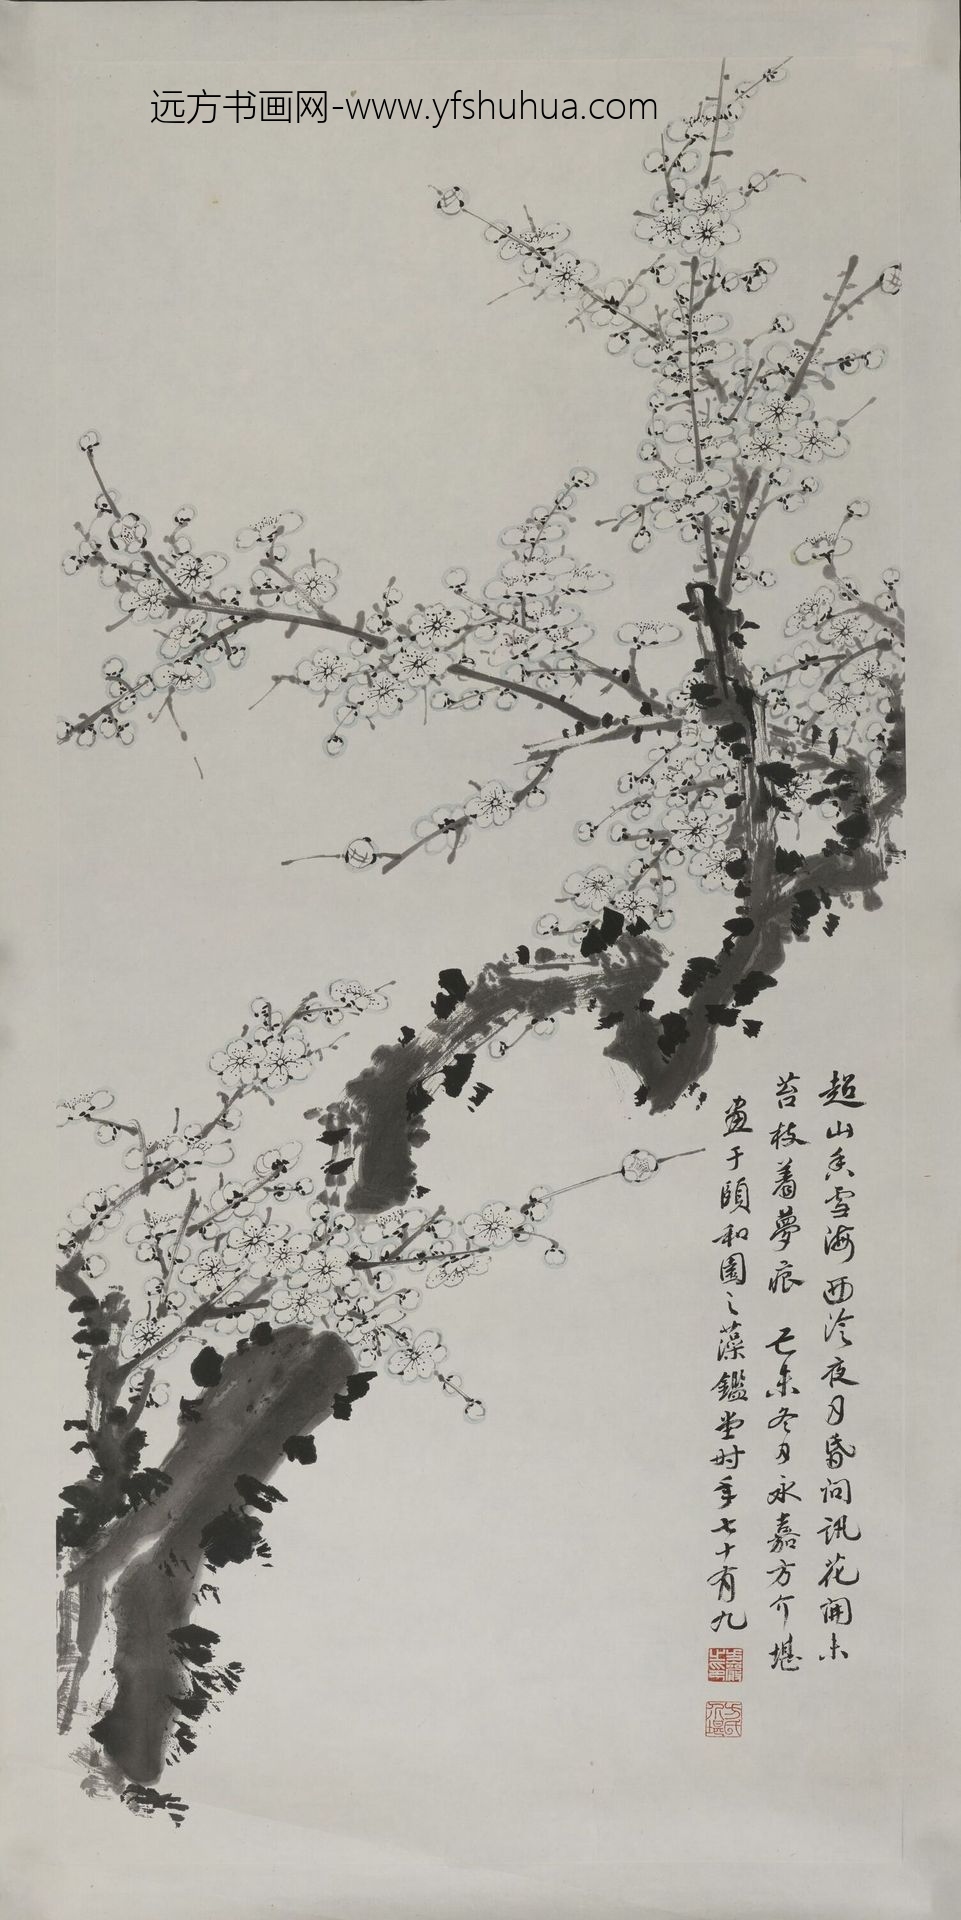 远方书画网-www.yfshuhua.com
超山香雪海西泠夜月昏问讯花开未
苔枝着夢痕 己未冬月永嘉方介堪
畫于頤和園之藻鑑堂时年七十有九
方氏
介堪